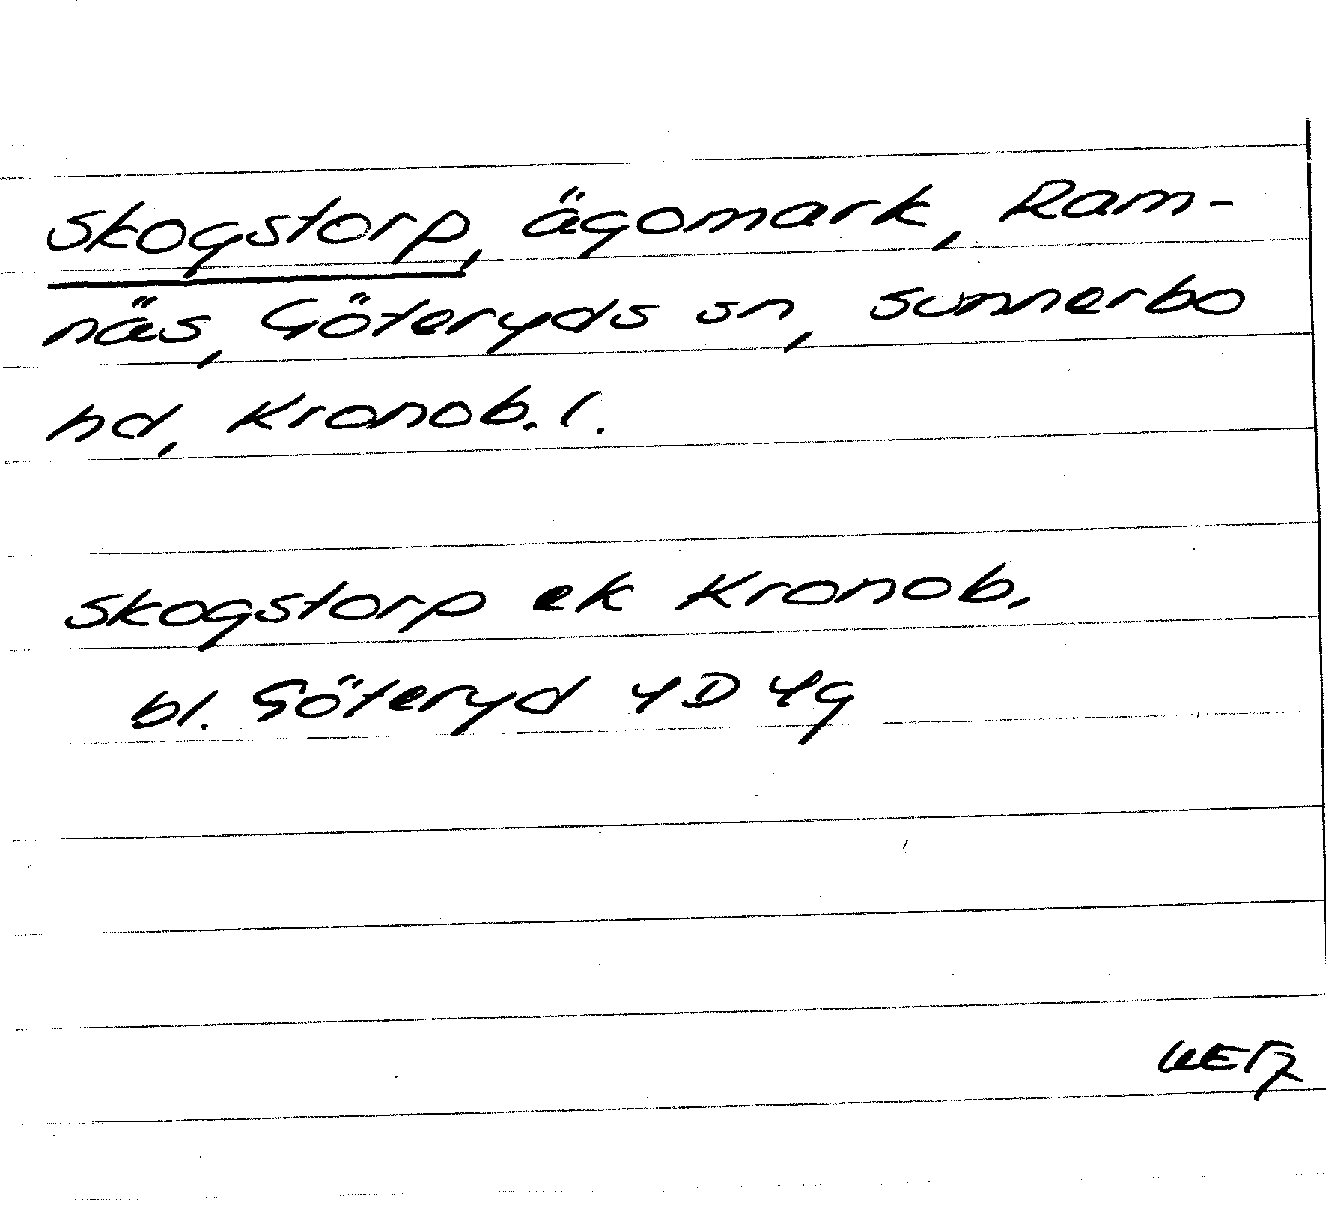 Skogstorp, ägomark, Ram-
näs, Göteryds sn, Sunnerbo
hd, Kronob. l.
Skogstorp ek Kronob.
bl. Göteryd 4D 4g